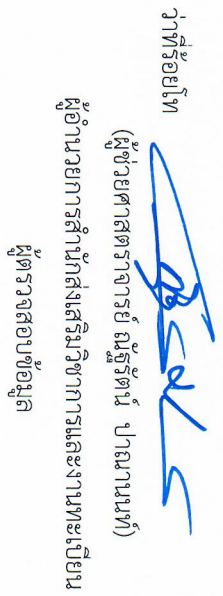 ว่าที่ร้อยโท
(ผู้ช่วยศาสตราจารย์ ณัฐรัตน์ ปาณานนท์)
ผู้อำนวยการสำนักส่งเสริมวิชาการและงานทะเบียน
ผู้ตรวจสอบข้อมูล